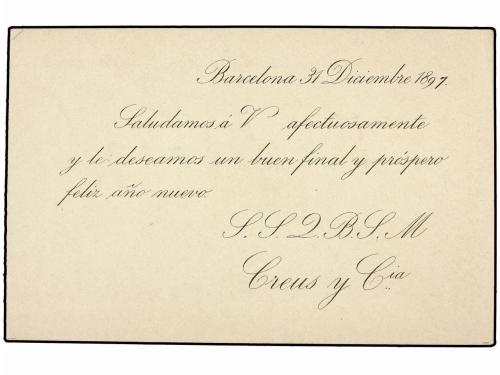 Barcelona 31 Diciembre 1897.
Saludamos á V afectuosamente
y le deseamos un buen final y próspero
feliz año nuevo.
S. S. Q. B. S. M
Creus y Cia